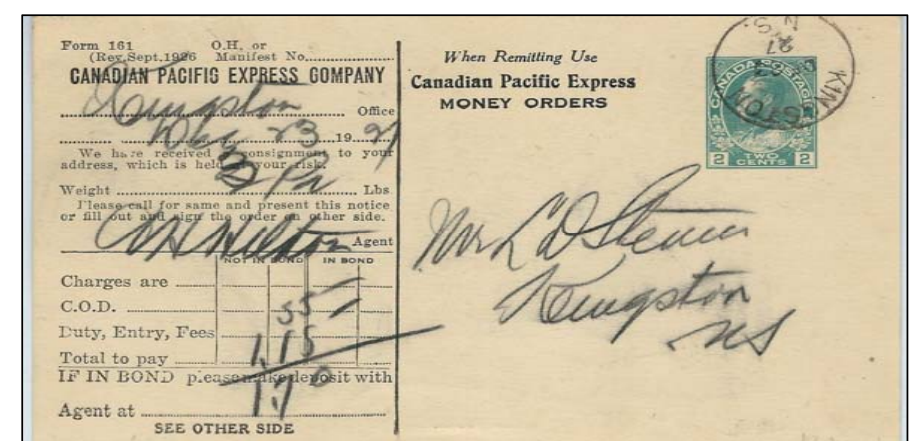 Form 161 O.H. or
(Rev. Sept. 1926 Manifest No.
CANADIAN PACIFIC EXPRESS COMPANY
Kingston Office
Dec 23 1927
We have received a consignment to your
address, which is held at your risk.
Weight Lbs
Please call for same and present this notice
or fill out and sign the order on other side.
Hilton Agent
NOT IN BOND IN BOND
Charges are 55
C.O.D.
Duty, Entry, Fees 1.15
Total to pay 1.70
IF IN BOND please make deposit with
Agent at
SEE OTHER SIDE
When Remitting Use
Canadian Pacific Express
MONEY ORDERS
KINGSTON
N.S.
27
CANADA POSTAGE
2 TWO CENTS 2
Mr L D
Kingston
NS